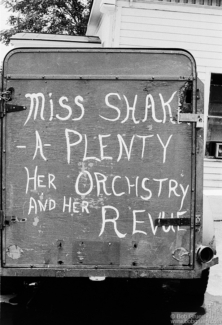 Miss SHAK
-A- PLENTY
HER ORCHSTRY
AND HER REVUE